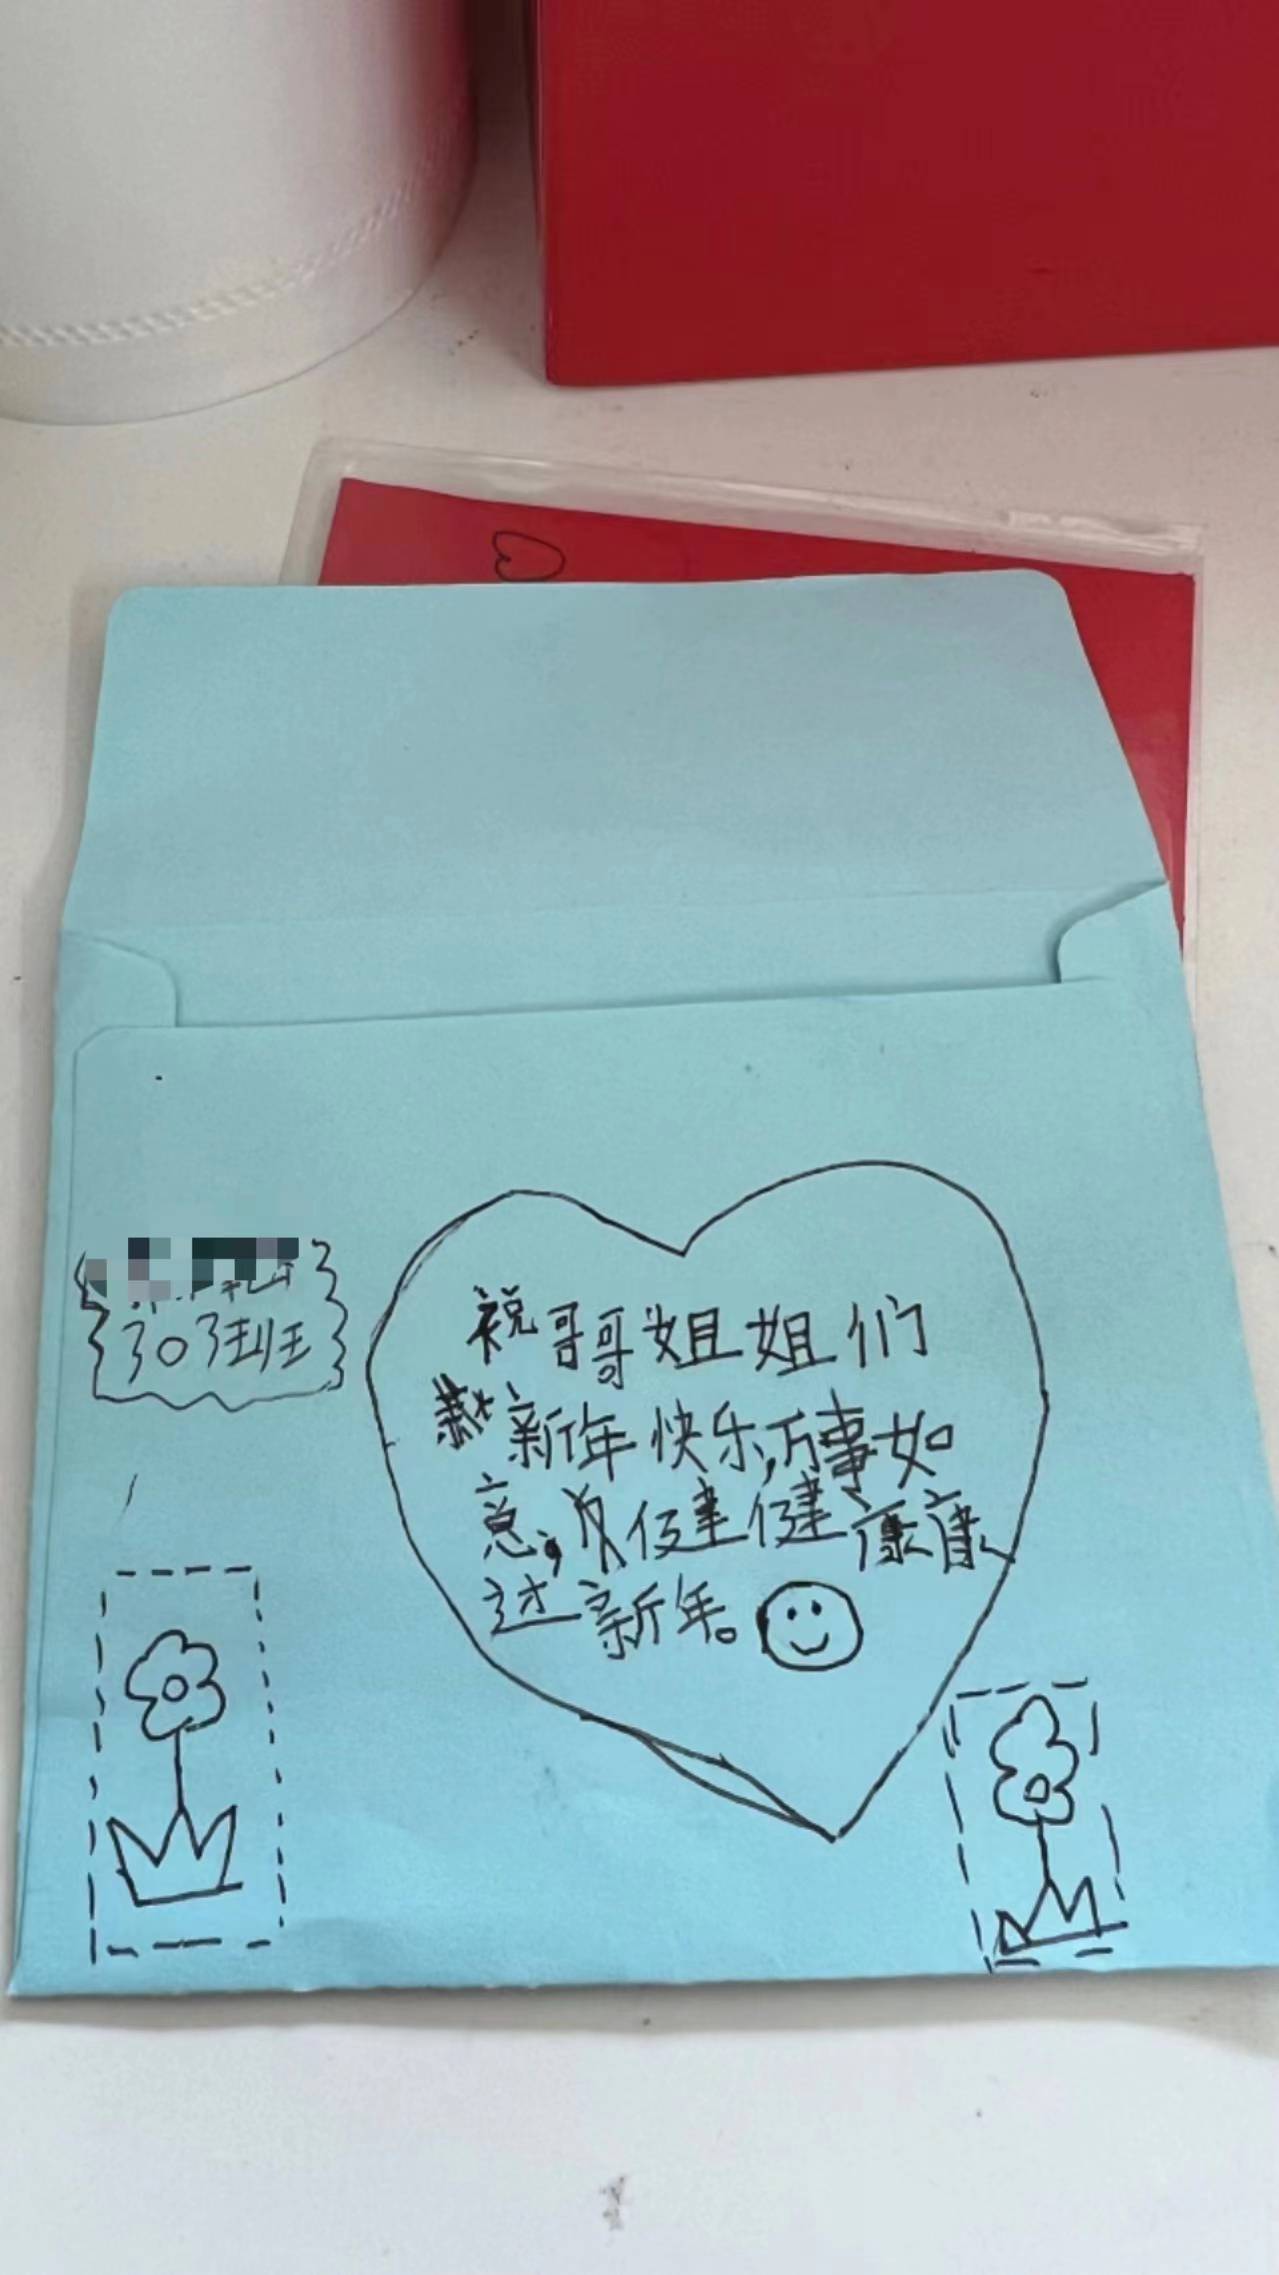 303班
祝哥哥姐姐们
新年快乐,万事如
意,健健康康
过新年。